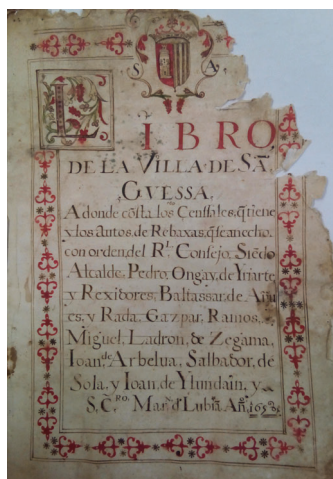 S A
LIBRO
DE LA VILLA DE SÃ
GVESSA.
A donde cõsta los Çensales, q̃ tiene
y los Autos de Rebaxas, q̃ se an echo
con orden del Rˡ. Consejo, Siẽdo
Alcalde Pedro, Ongay, de Yriarte
y Rexidores, Baltassar, de
es, y Rada, Gazpar, Ramos,
Miguel, Ladron, de Zegama,
Ioan de Arbelua, Salbador, de
Sola, y Ioan, de Ylundain, y
S. C̃ᴿᴼ. Mar. d Lubiã Añ